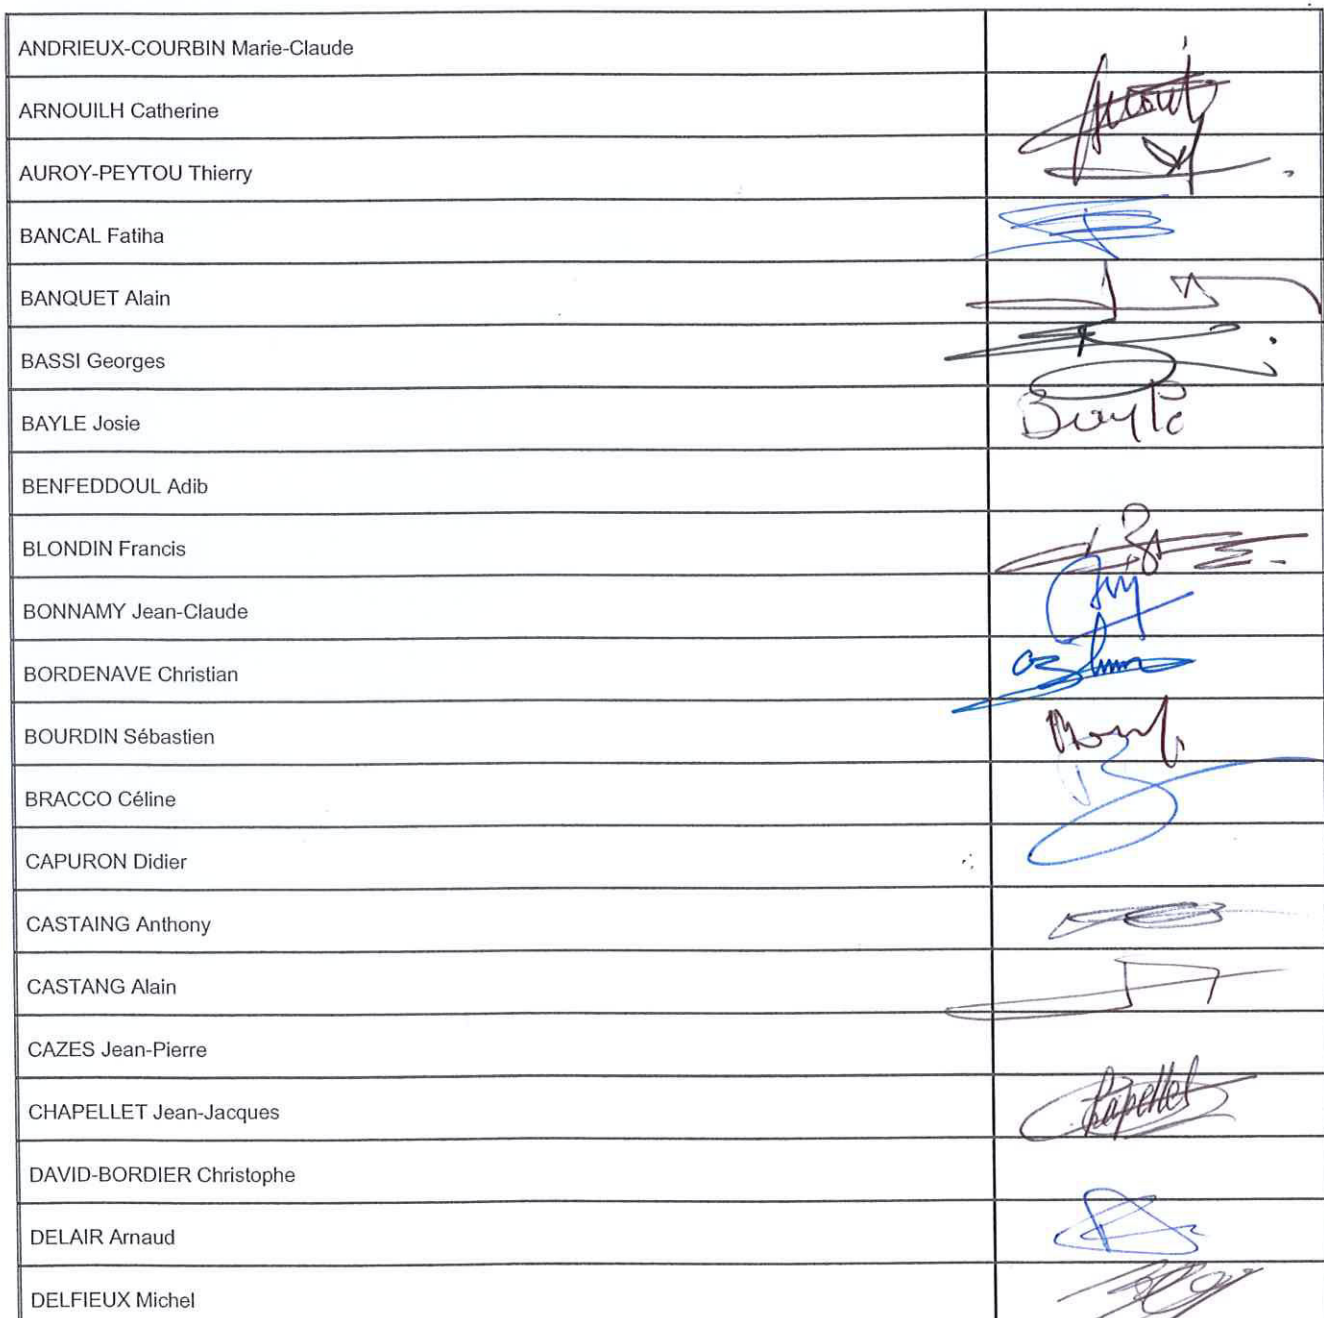 ANDRIEUX-COURBIN Marie-Claude
ARNOUILH Catherine
AUROY-PEYTOU Thierry
BANCAL Fatiha
BANQUET Alain
BASSI Georges
BAYLE Josie
Bayle
BENFEDDOUL Adib
BLONDIN Francis
BONNAMY Jean-Claude
BORDENAVE Christian
BOURDIN Sébastien
BRACCO Céline
CAPURON Didier
CASTAING Anthony
CASTANG Alain
CAZES Jean-Pierre
CHAPELLET Jean-Jacques
DAVID-BORDIER Christophe
DELAIR Arnaud
DELFIEUX Michel